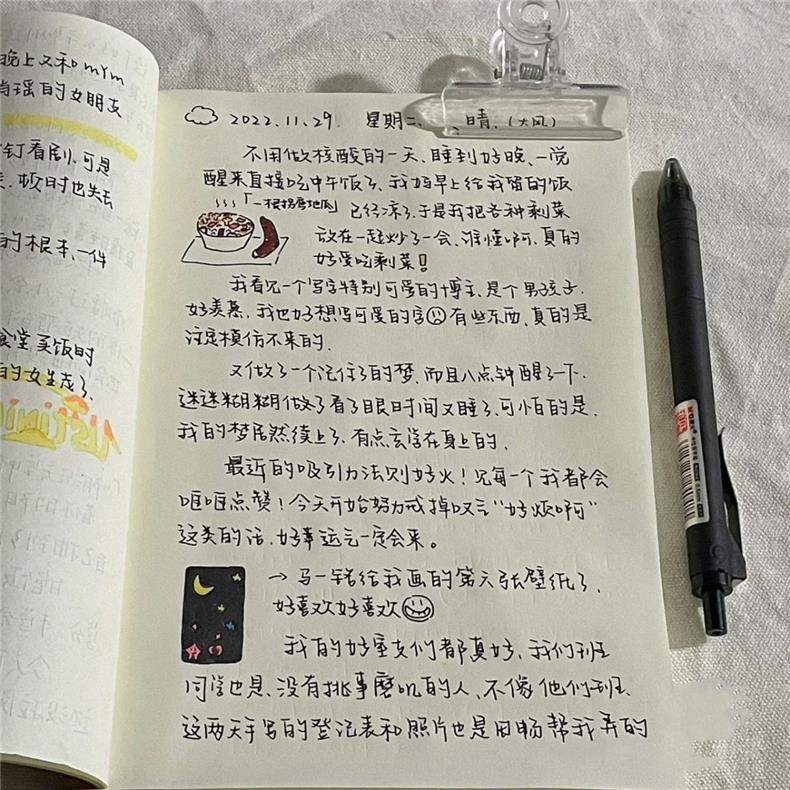 晚上又和mym
的女朋友
钉看剧.可是
板时也失去
的根本.一件
食堂买饭时
的女生走了.
2022.11.29. 星期二. 晴.(大风)
不用做核酸的一天、睡到好晚、一觉
醒来直接吃中午饭了、我妈早上给我留的饭
「一根拐弯地瓜」 已经凉了、于是我把各种剩菜
放在一起炒了一会、谁懂啊、真的
好爱吃剩菜!
我看见一个写字特别可爱的博主、是个男孩子、
好羡慕、我也好想写可爱的字 有些东西、真的是
注定模仿不来的.
又做了一个记住了的梦、而且八点钟醒了一下、
迷迷糊糊做了看了眼时间又睡了、可怕的是、
我的梦居然续上了、有点玄学在身上的.
最近的吸引力法则好火!见每一个我都会
哐哐点赞!今天开始努力戒掉叹气"好烦啊"
这类的话、好幸运气一定会来。
→ 马一铭给我画的第六张壁纸了、
好喜欢好喜欢
我的好室友们都真好、我们班
同学也是、没有挑事磨叽的人、不像他们班、
这两天手写的登记表和照片也是田杨帮我弄的